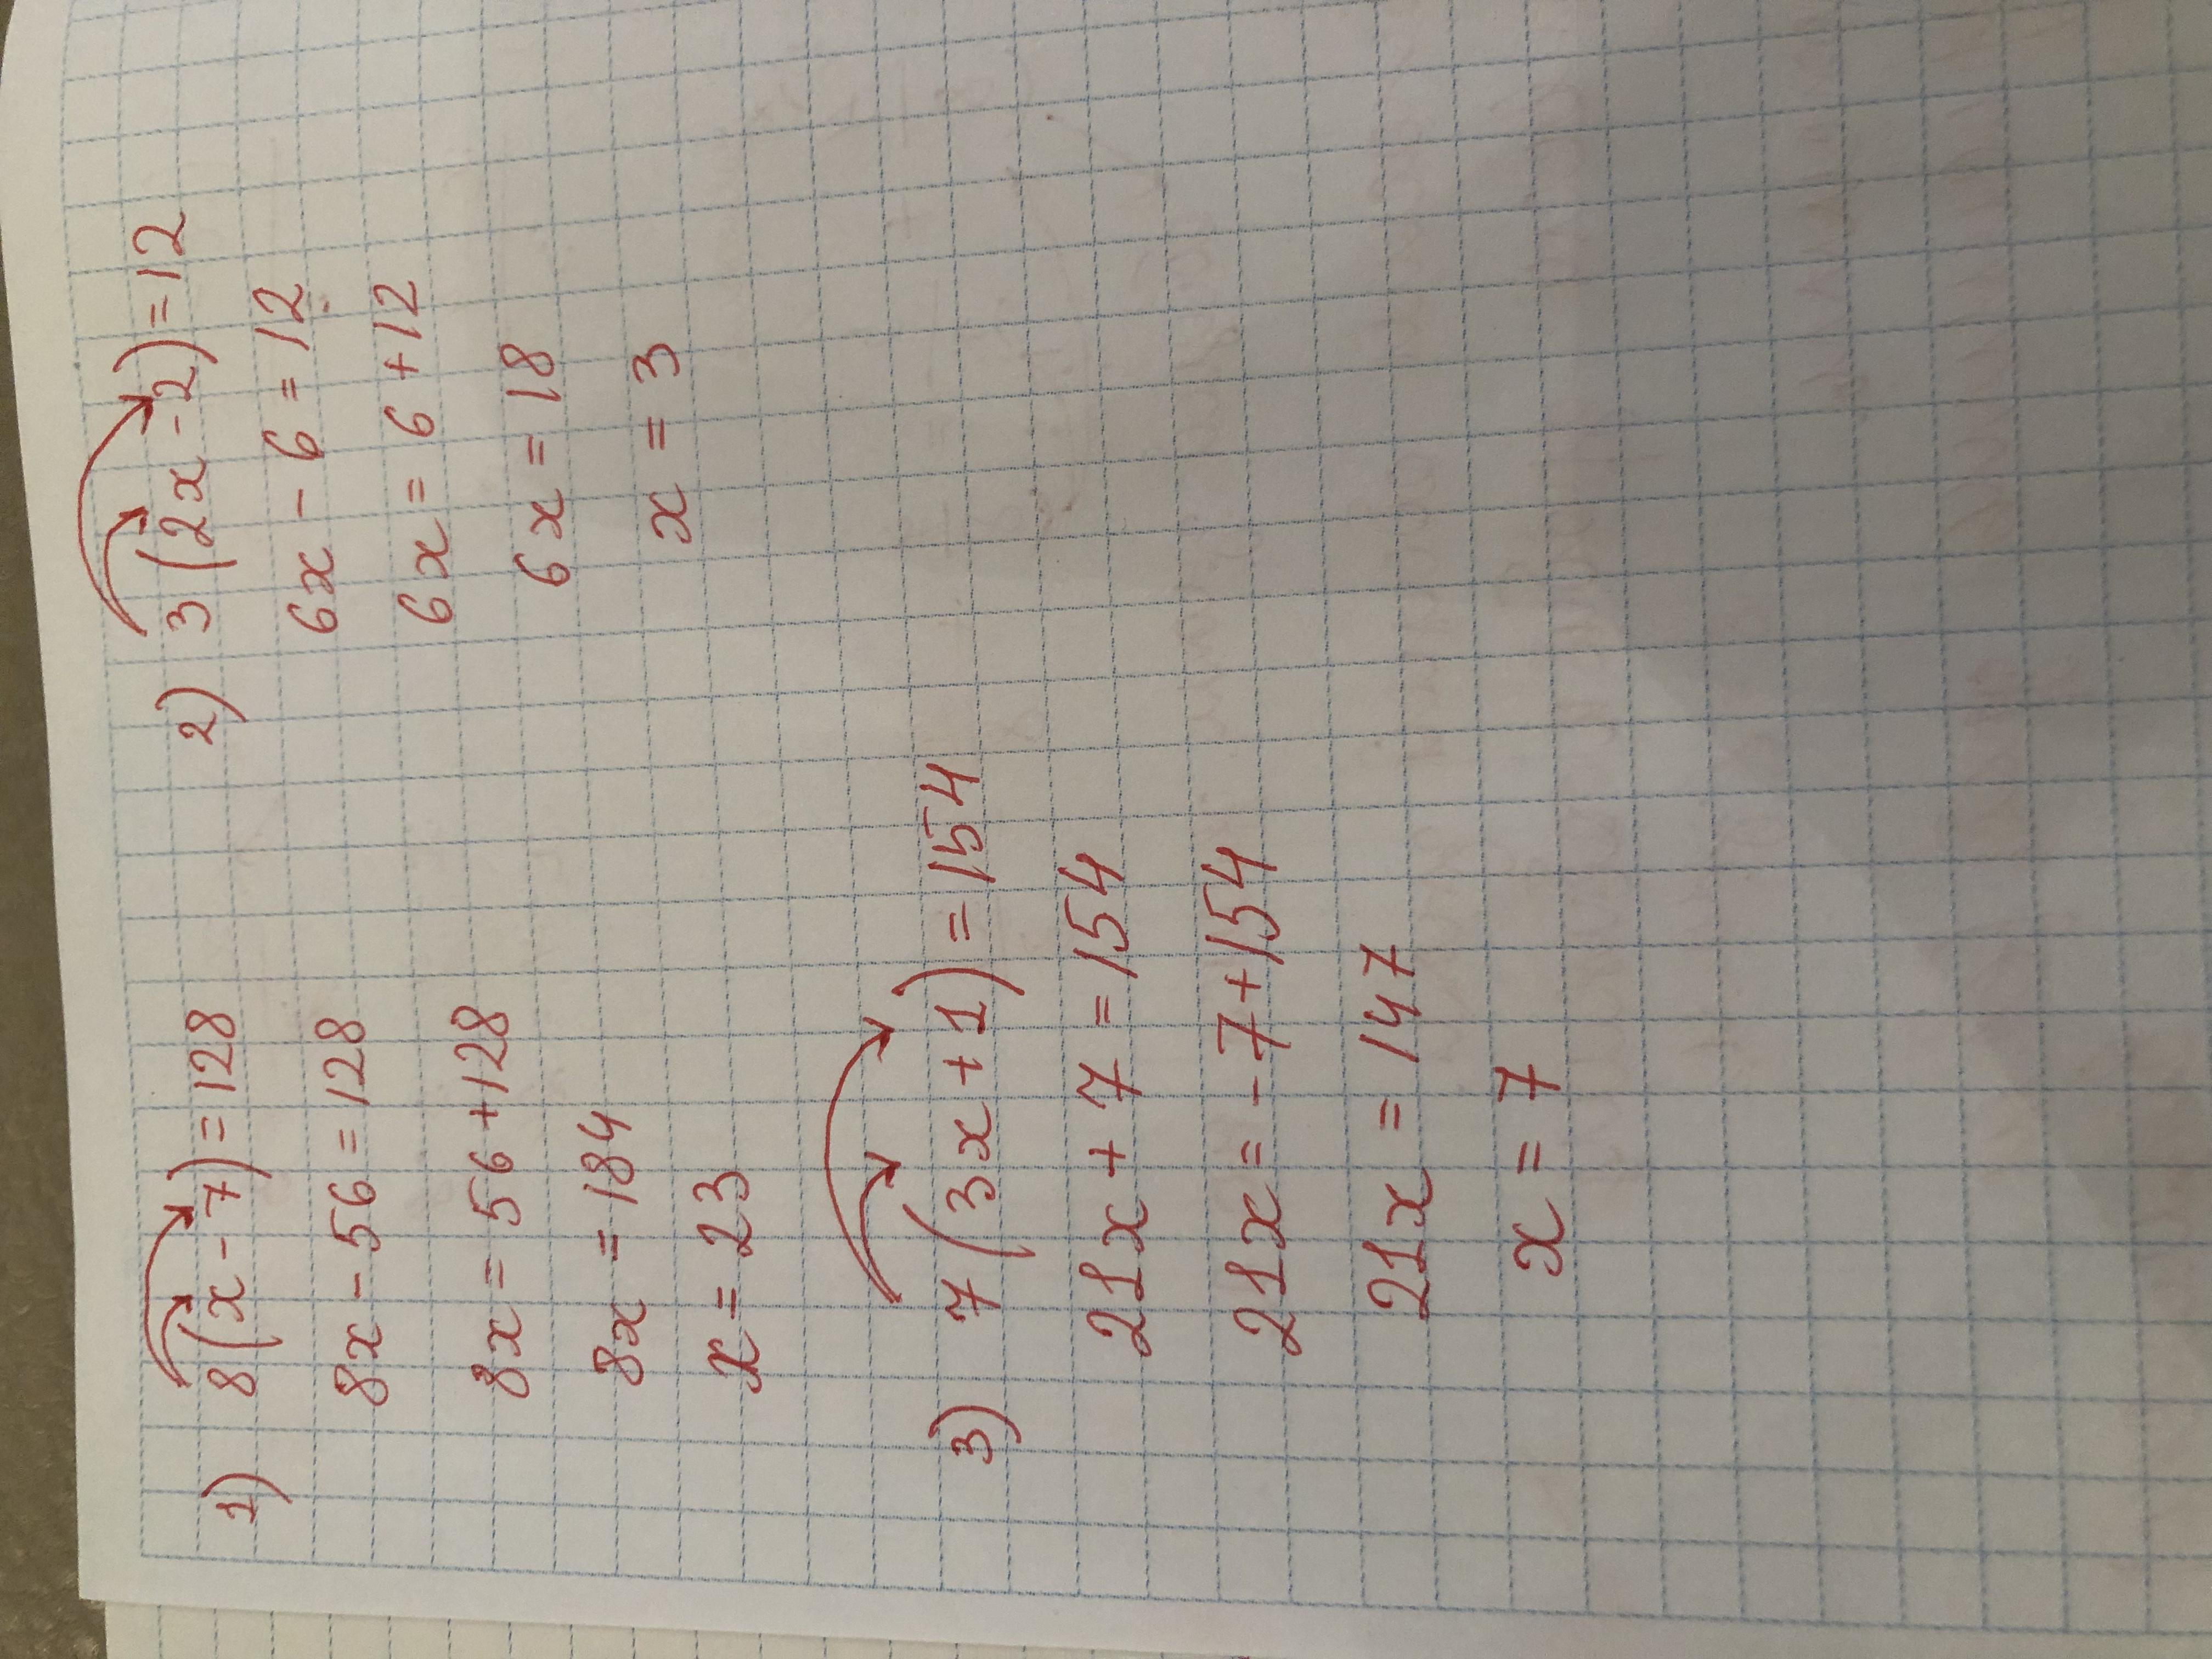 1) 8(x-7)=128
8x-56=128
8x=56+128
8x=184
x=23
2) 3(2x-2)=12
6x-6=12
6x=6+12
6x=18
x=3
3) 7(3x+1)=154
21x+7=154
21x=-7+154
21x=147
x=7